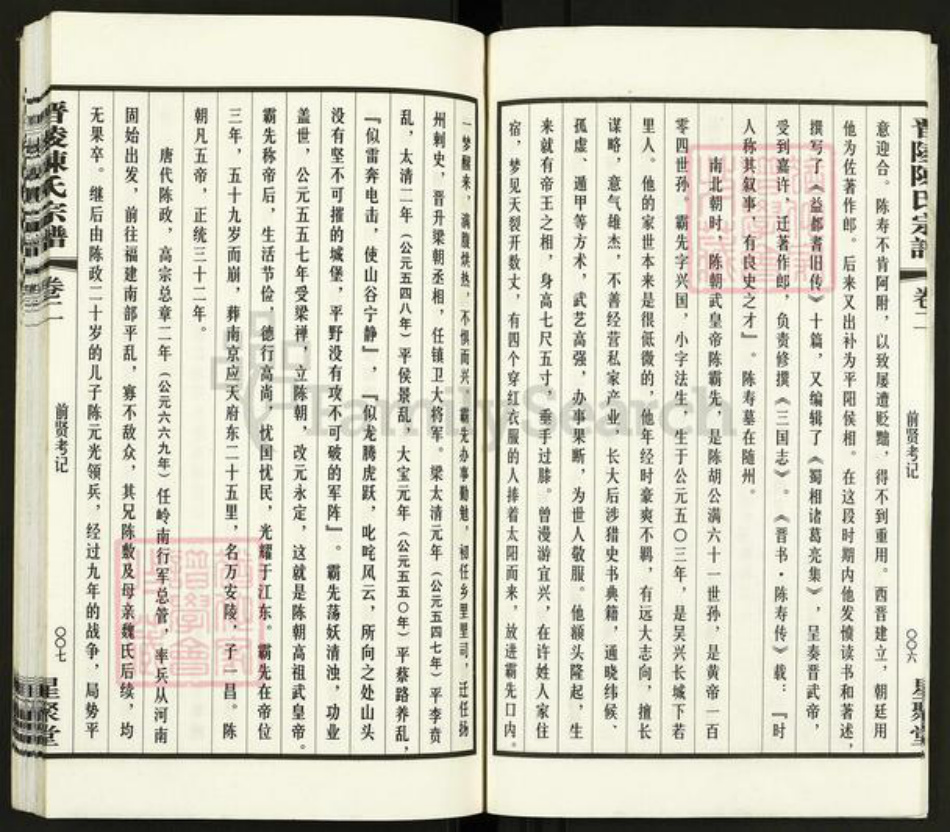 晋陵陈氏宗谱 卷二 前贤考记 〇〇六 星聚堂
意迎合。陈寿不肯阿附，以致屡遭贬黜，得不到重用。西晋建立，朝廷用
他为佐著作郎。后来又出补为平阳侯相。在这段时期内他发愤读书和著述，
撰写了《益都耆旧传》十篇，又编辑了《蜀相诸葛亮集》，呈奏晋武帝，
受到嘉许，迁著作郎，负责修撰《三国志》。《晋书·陈寿传》载：『时
人称其叙事，有良史之才』。陈寿墓在随州。
南北朝时，陈朝武皇帝陈霸先，是陈胡公满六十一世孙，是黄帝一百
零四世孙。霸先字兴国，小字法生，生于公元五〇三年，是吴兴长城下若
里人。他的家世本来是很低微的，他年经时豪爽不羁，有远大志向，擅长
谋略，意气雄杰，不善经营私家产业，长大后涉猎史书典籍，通晓纬候、
孤虚、遁甲等方术，武艺高强，办事果断，为世人敬服。他额头隆起，生
来就有帝王之相，身高七尺五寸，垂手过膝。曾漫游宜兴，在许姓人家住
宿，梦见天裂开数丈，有四个穿红衣服的人捧着太阳而来，放进霸先口内。
一梦醒来，满腹烘热，不惧而兴，霸先办事勤勉，初任乡里里司，迁任扬
州刺史，晋升梁朝丞相，任镇卫大将军。梁太清元年（公元五四七年）平李贲
乱，太清二年（公元五四八年）平侯景乱，大宝元年（公元五五〇年）平蔡路养乱，
『似雷奔电击，使山谷宁静』，『似龙腾虎跃，叱咤风云，所向之处山头
没有坚不可摧的城堡，平野没有攻不可破的军阵』。霸先荡妖清浊，功业
盖世，公元五五七年受梁禅，立陈朝，改元永定，这就是陈朝高祖武皇帝。
霸先称帝后，生活节俭，德行高尚，忧国忧民，光耀于江东。霸先在帝位
三年，五十九岁而崩，葬南京应天府东二十五里，名万安陵，子一昌。陈
朝凡五帝，正统三十二年。
唐代陈政，高宗总章二年（公元六六九年）任岭南行军总管，率兵从河南
固始出发，前往福建南部平乱，寡不敌众，其兄陈敷及母亲魏氏后续，均
无果卒。继后由陈政二十岁的儿子陈元光领兵，经过九年的战争，局势平
晋陵陈氏宗谱 卷二 前贤考记 〇〇七 星聚堂
FamilySearch